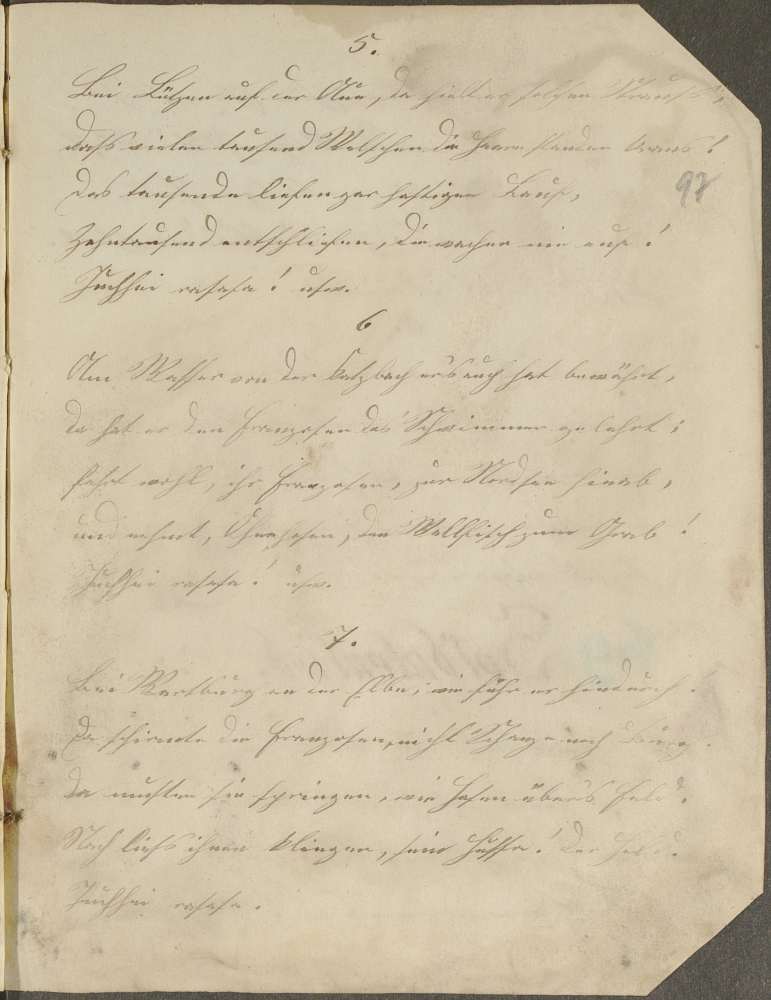 5.
Bei Lützen auf der Aue, da hielt er solchen Strauß,
daß vielen tausend Welschen die Haare standen
das tausende liefen gar hastigen Lauf,
Zehntausend entschliefen, die wachen nie auf!
Juchhei rasasa! usw.
97
6
Am Wasser von der Katzbach ers auch hat bewährt,
da hat er den Franzosen das Schwimmen gelehrt;
fahrt wohl, ihr Franzosen, zur Nordsee hinab,
und nehmt, Ohnehosen, den Wallfisch zum Grab!
Juchhei rasasa! usw.
7.
Bei Wartburg an der Elbe, wie fuhr er hindurch.
Da schirmte die Franzosen, nicht Schanze noch Burg.
da mußten sie springen, wie Hasen übers Feld.
Nach ließ ihnen klingen, sein Hussa! der Held.
Juchhei rasasa.